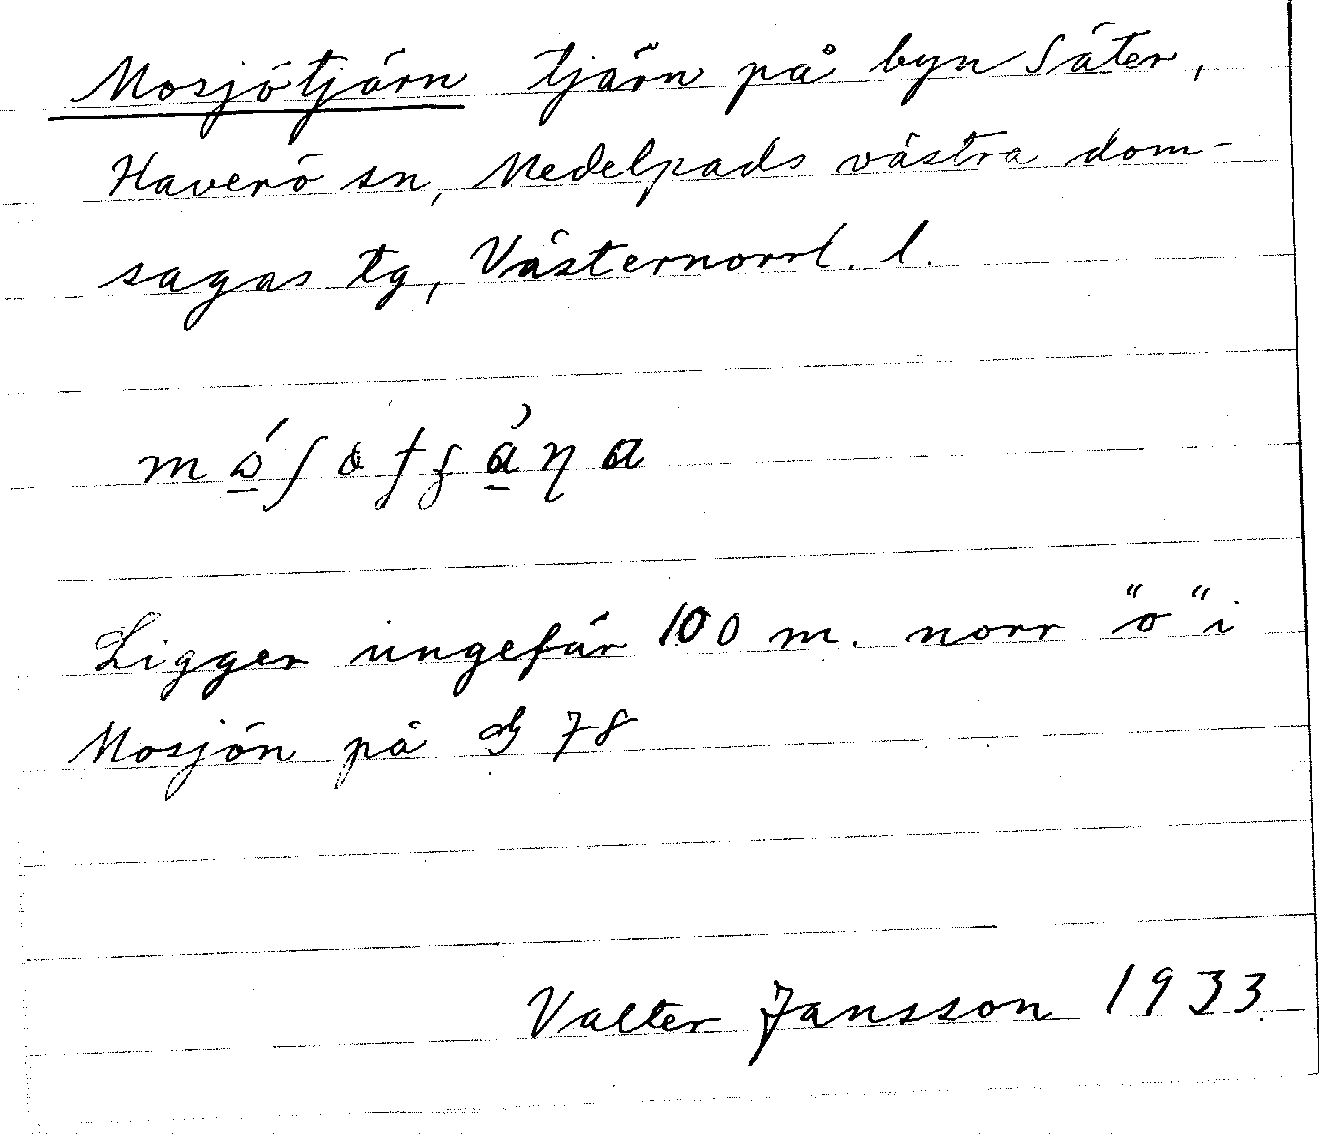 Mosjötjärn tjärn på byn Säter,
Haverö sn, Medelpads västra dom-
sagas tg, Västernorrl. l.
Ligger ungefär 100 m. norr "o" i
Mosjön på G 78
Valter Jansson 1933.